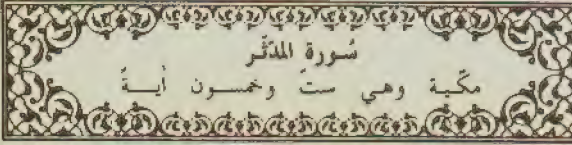 سُورة المدّثّر
مكّيّة وهي ستّ وخمســون آيــةً